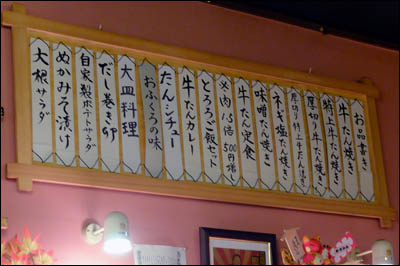 お品書き
牛たん焼き
特上牛たん焼き
厚切り牛たん焼き
厚切り特上牛たん焼き
ネギ塩たん焼き
味噌たん焼き
牛たん定食
※肉1.5倍500円増
とろろご飯セット
牛たんカレー
たんシチュー
おふくろの味
大皿料理
だし巻き卵
自家製ポテトサラダ
ぬかみそ漬け
大根サラダ